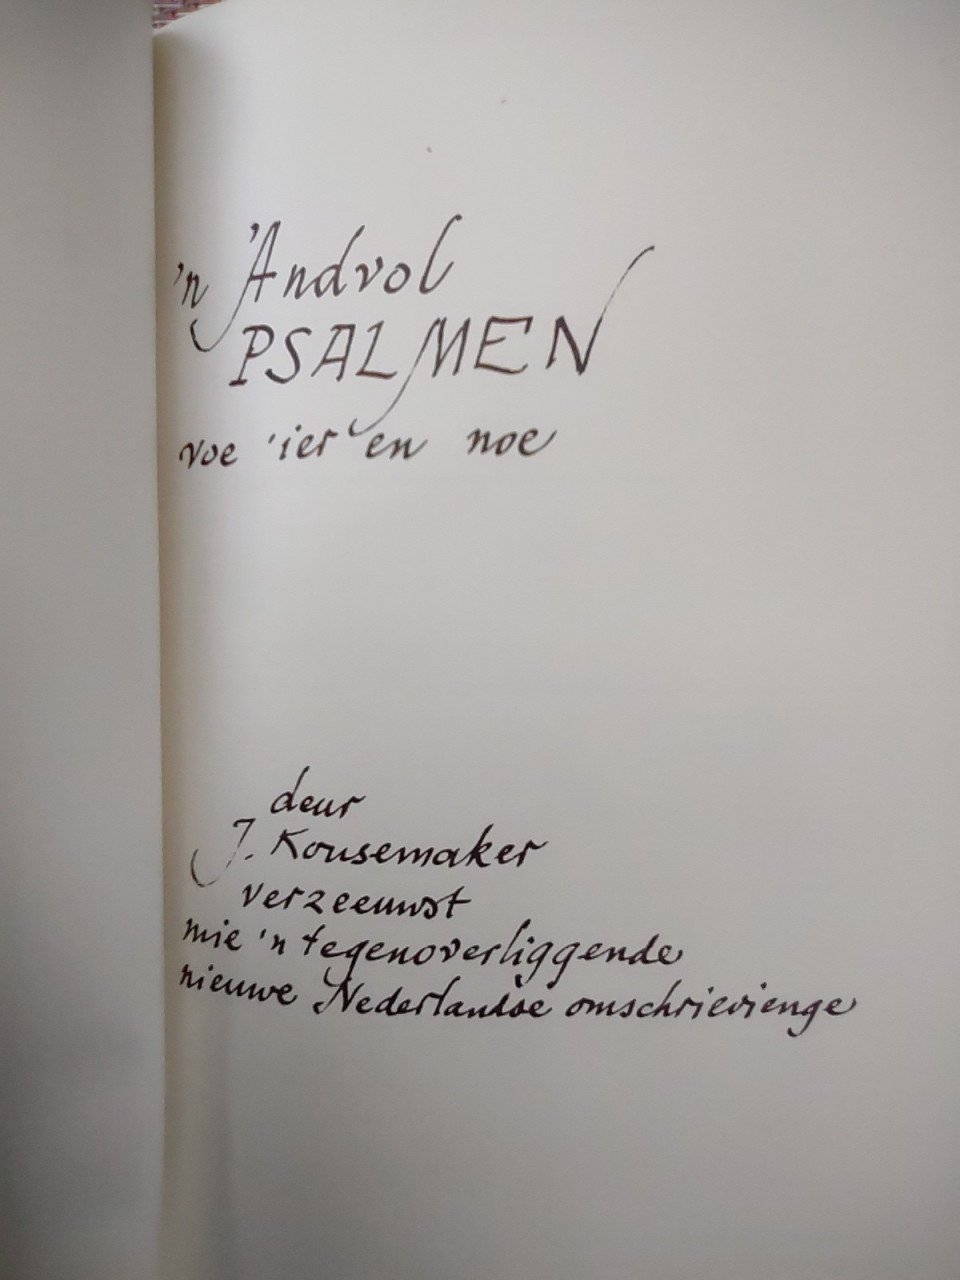 'n 'Andvol
PSALMEN
voe 'ier en noe
deur
J. Kousemaker
verzeeuwst
mie 'n tegenoverliggende
nieuwe Nederlandse omschrievienge